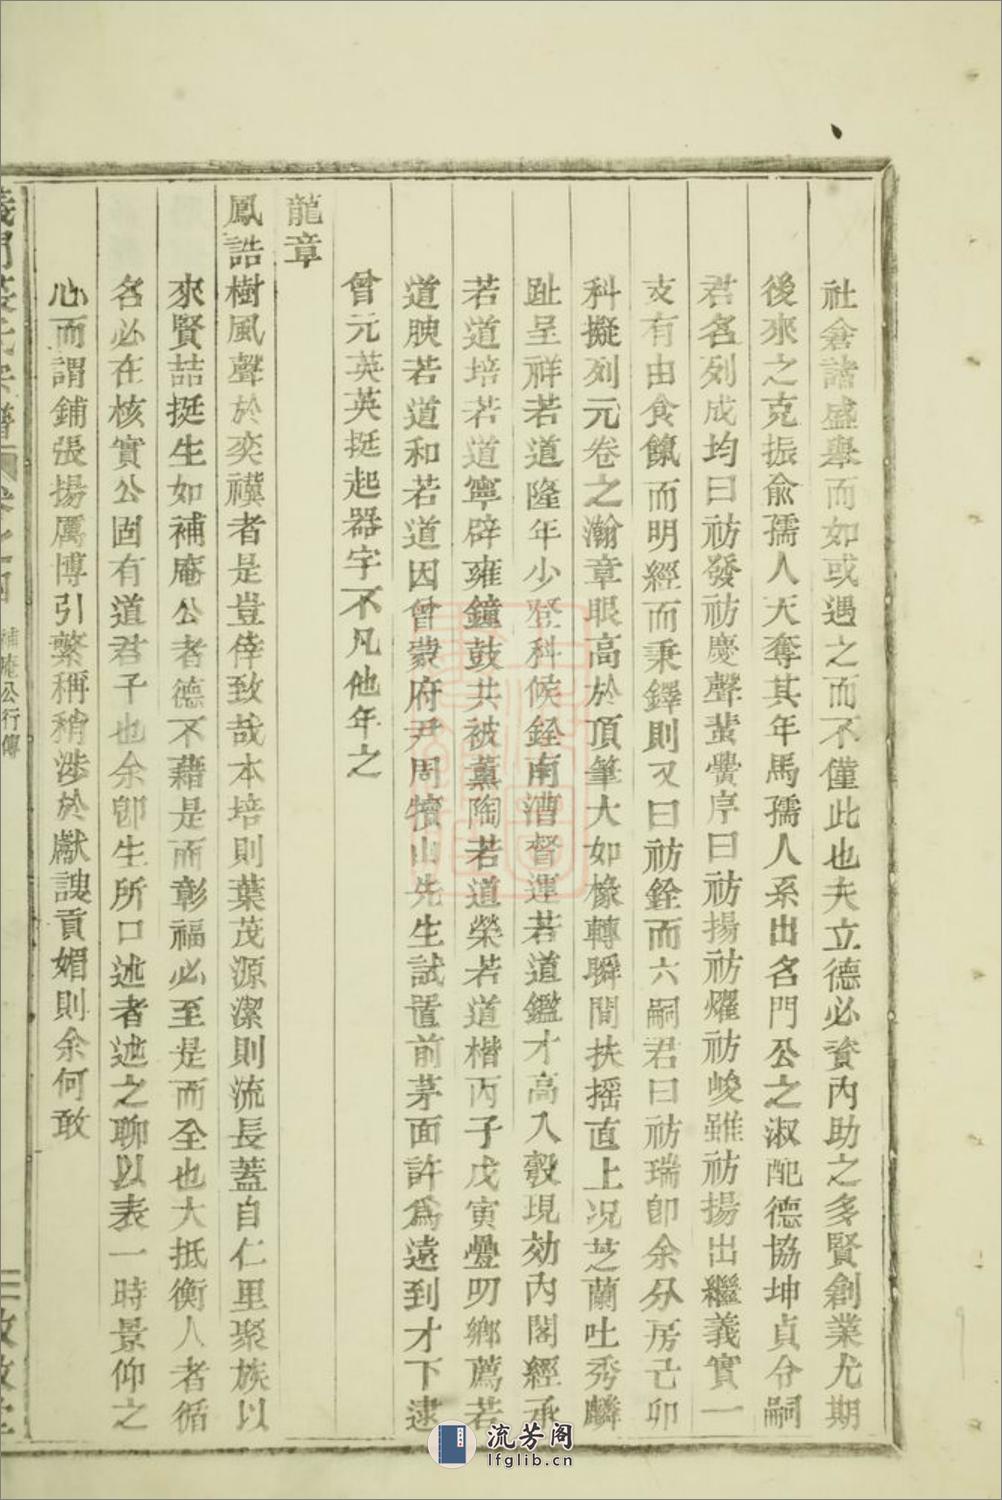 社倉諸盛舉而如或遇之而不僅此也夫立德必資內助之多賢創業尤期
後來之克振俞孺人天奪其年馬孺人系出名門公之淑配德協坤貞令嗣
君名列成均曰祊發祊慶聲蜚黌序曰祊揚祊燿祊峻雖祊揚出繼義實一
支有由食餼而明經而秉鐸則又曰祊銓而六嗣君曰祊瑞卽余分房己卯
科擬列元卷之瀚章眼高於頂筆大如椽轉瞬間扶搖直上况芝蘭吐秀麟
趾呈祥若道隆年少登科候銓南漕督運若道鑑才高入彀現効內閣經承
若道培若道寧辟雍鐘鼓共被薰陶若道榮若道楷丙子戊寅疊叨鄉薦若
道腴若道和若道因曾蒙府尹周犢山先生試置前茅面許爲遠到才下逮
曾元英英挺起器宇不凡他年之
龍章
鳳誥樹風聲於奕禩者是豈倖致哉本培則葉茂源潔則流長蓋自仁里聚族以
來賢喆挺生如補庵公者德不藉是而彰福必至是而全也大抵衡人者循
名必在核實公固有道君子也余卽生所口述者述之聊以表一時景仰之
心而謂鋪張揚厲博引繁稱稍涉於獻諛貢媚則余何敢
補庵公行傳
流芳阁
lfglib.cn